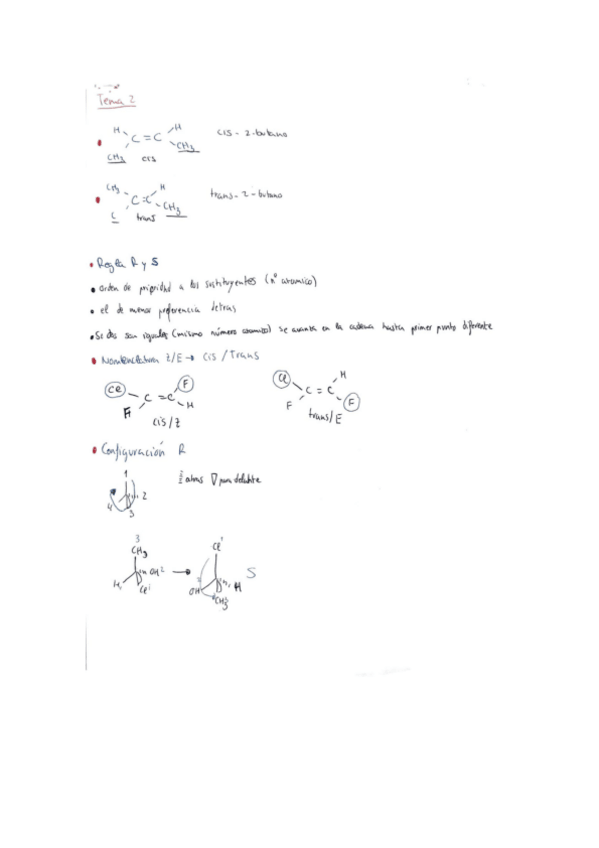 Tema 2
H H
C = C cis - 2-butano
CH3 CH3
cis
CH3 H
C = C trans - 2 - butano
C CH3
trans
Regla R y S
orden de prioridad a los sustituyentes (nº atomico)
el de menor preferencia detras
Si dos son iguales (mismo número atomico) se avanza en la cadena hasta primer punto diferente
Nomenclatura Z/E → Cis / Trans
Cl F
C = C
F H
cis/Z
Cl H
C = C
F F
trans/E
Configuración R
1
4 2
3
atras para delante
3
CH3
OH2
H Cl1
→
Cl1
OH H
CH3
S